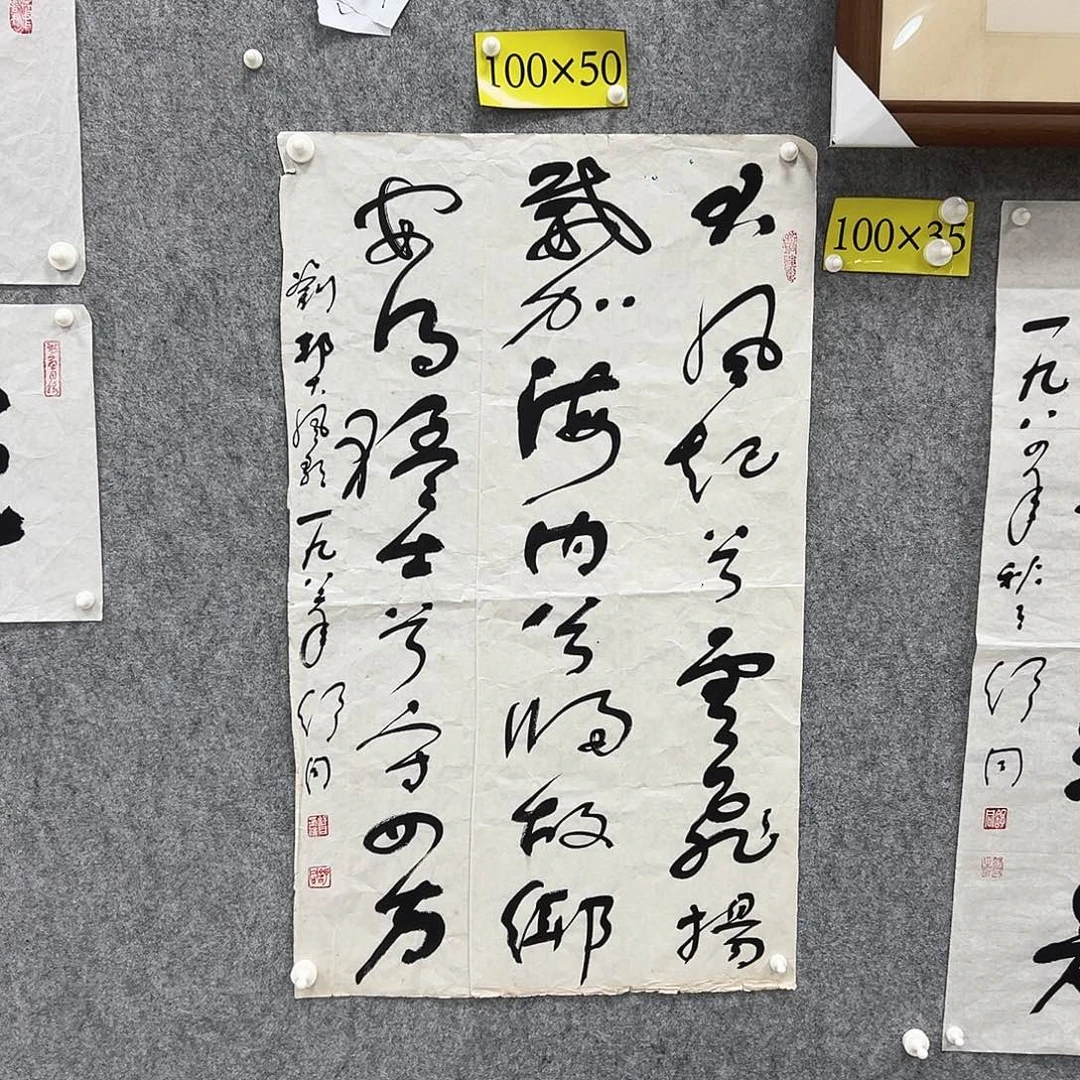 100×50
大風起兮雲飛揚
威加海内兮歸故鄉
安得猛士兮守四方
劉邦大風歌 一九八 年 舒同
100×35
一九八四年秋 舒同